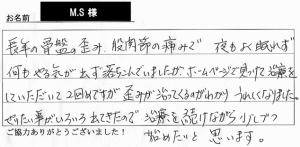 お名前 M.S 様
長年の骨盤の歪み、股関節の痛みで 夜もよく眠れず
何もやる気が出ず落ちこんでいましたが、ホームページで見つけて治療を
していただいて2回めですが 歪みが治ってくるのがわかり うれしくなりました。
やりたい事がいろいろ出てきたので 治療を続けながら 少しずつ
始めたいと 思います。
ご協力ありがとうございました!